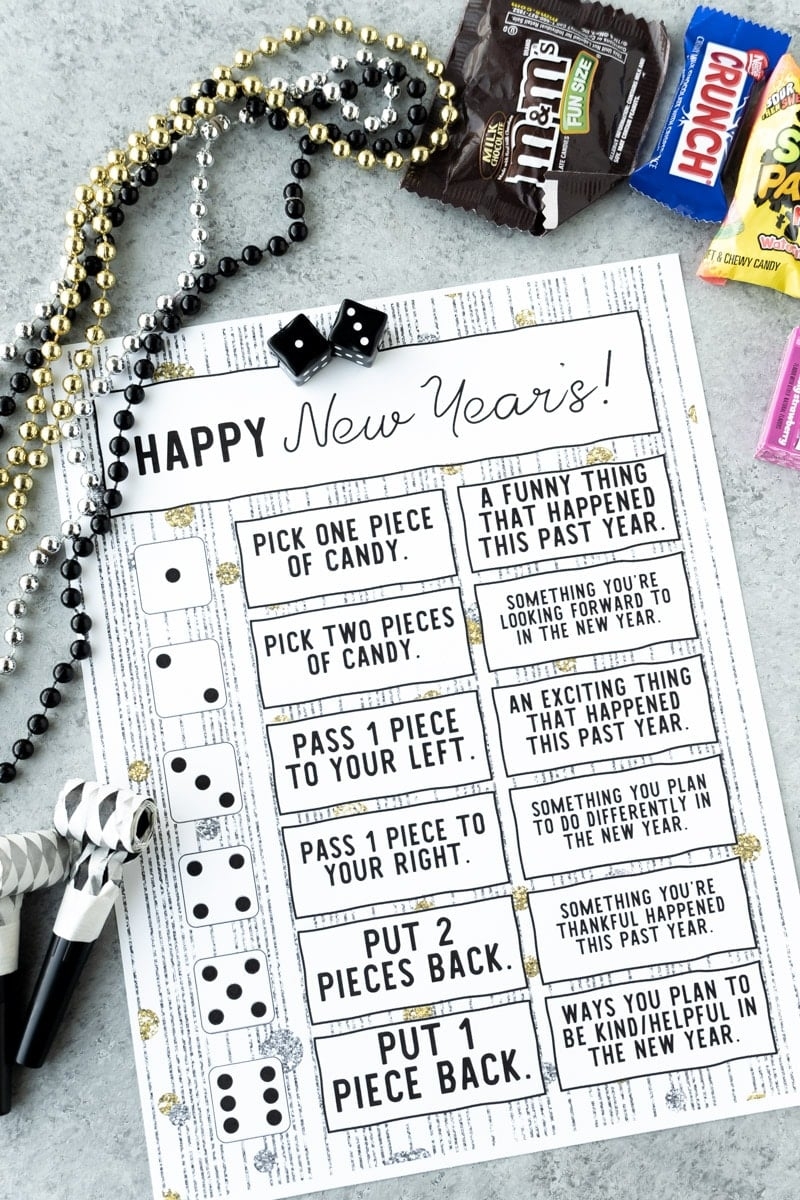 m&m's
MILK
CHOCOLATE
FUN SIZE
Nestle
CRUNCH
SOUR
& CHEWY CANDY
HAPPY New Year's!
PICK ONE PIECE
OF CANDY.
A FUNNY THING
THAT HAPPENED
THIS PAST YEAR.
PICK TWO PIECES
OF CANDY.
SOMETHING YOU'RE
LOOKING FORWARD TO
IN THE NEW YEAR.
PASS 1 PIECE
TO YOUR LEFT.
AN EXCITING THING
THAT HAPPENED
THIS PAST YEAR.
PASS 1 PIECE TO
YOUR RIGHT.
SOMETHING YOU PLAN
TO DO DIFFERENTLY IN
THE NEW YEAR.
PUT 2
PIECES BACK.
SOMETHING YOU'RE
THANKFUL HAPPENED
THIS PAST YEAR.
PUT 1
PIECE BACK.
WAYS YOU PLAN TO
BE KIND/HELPFUL IN
THE NEW YEAR.